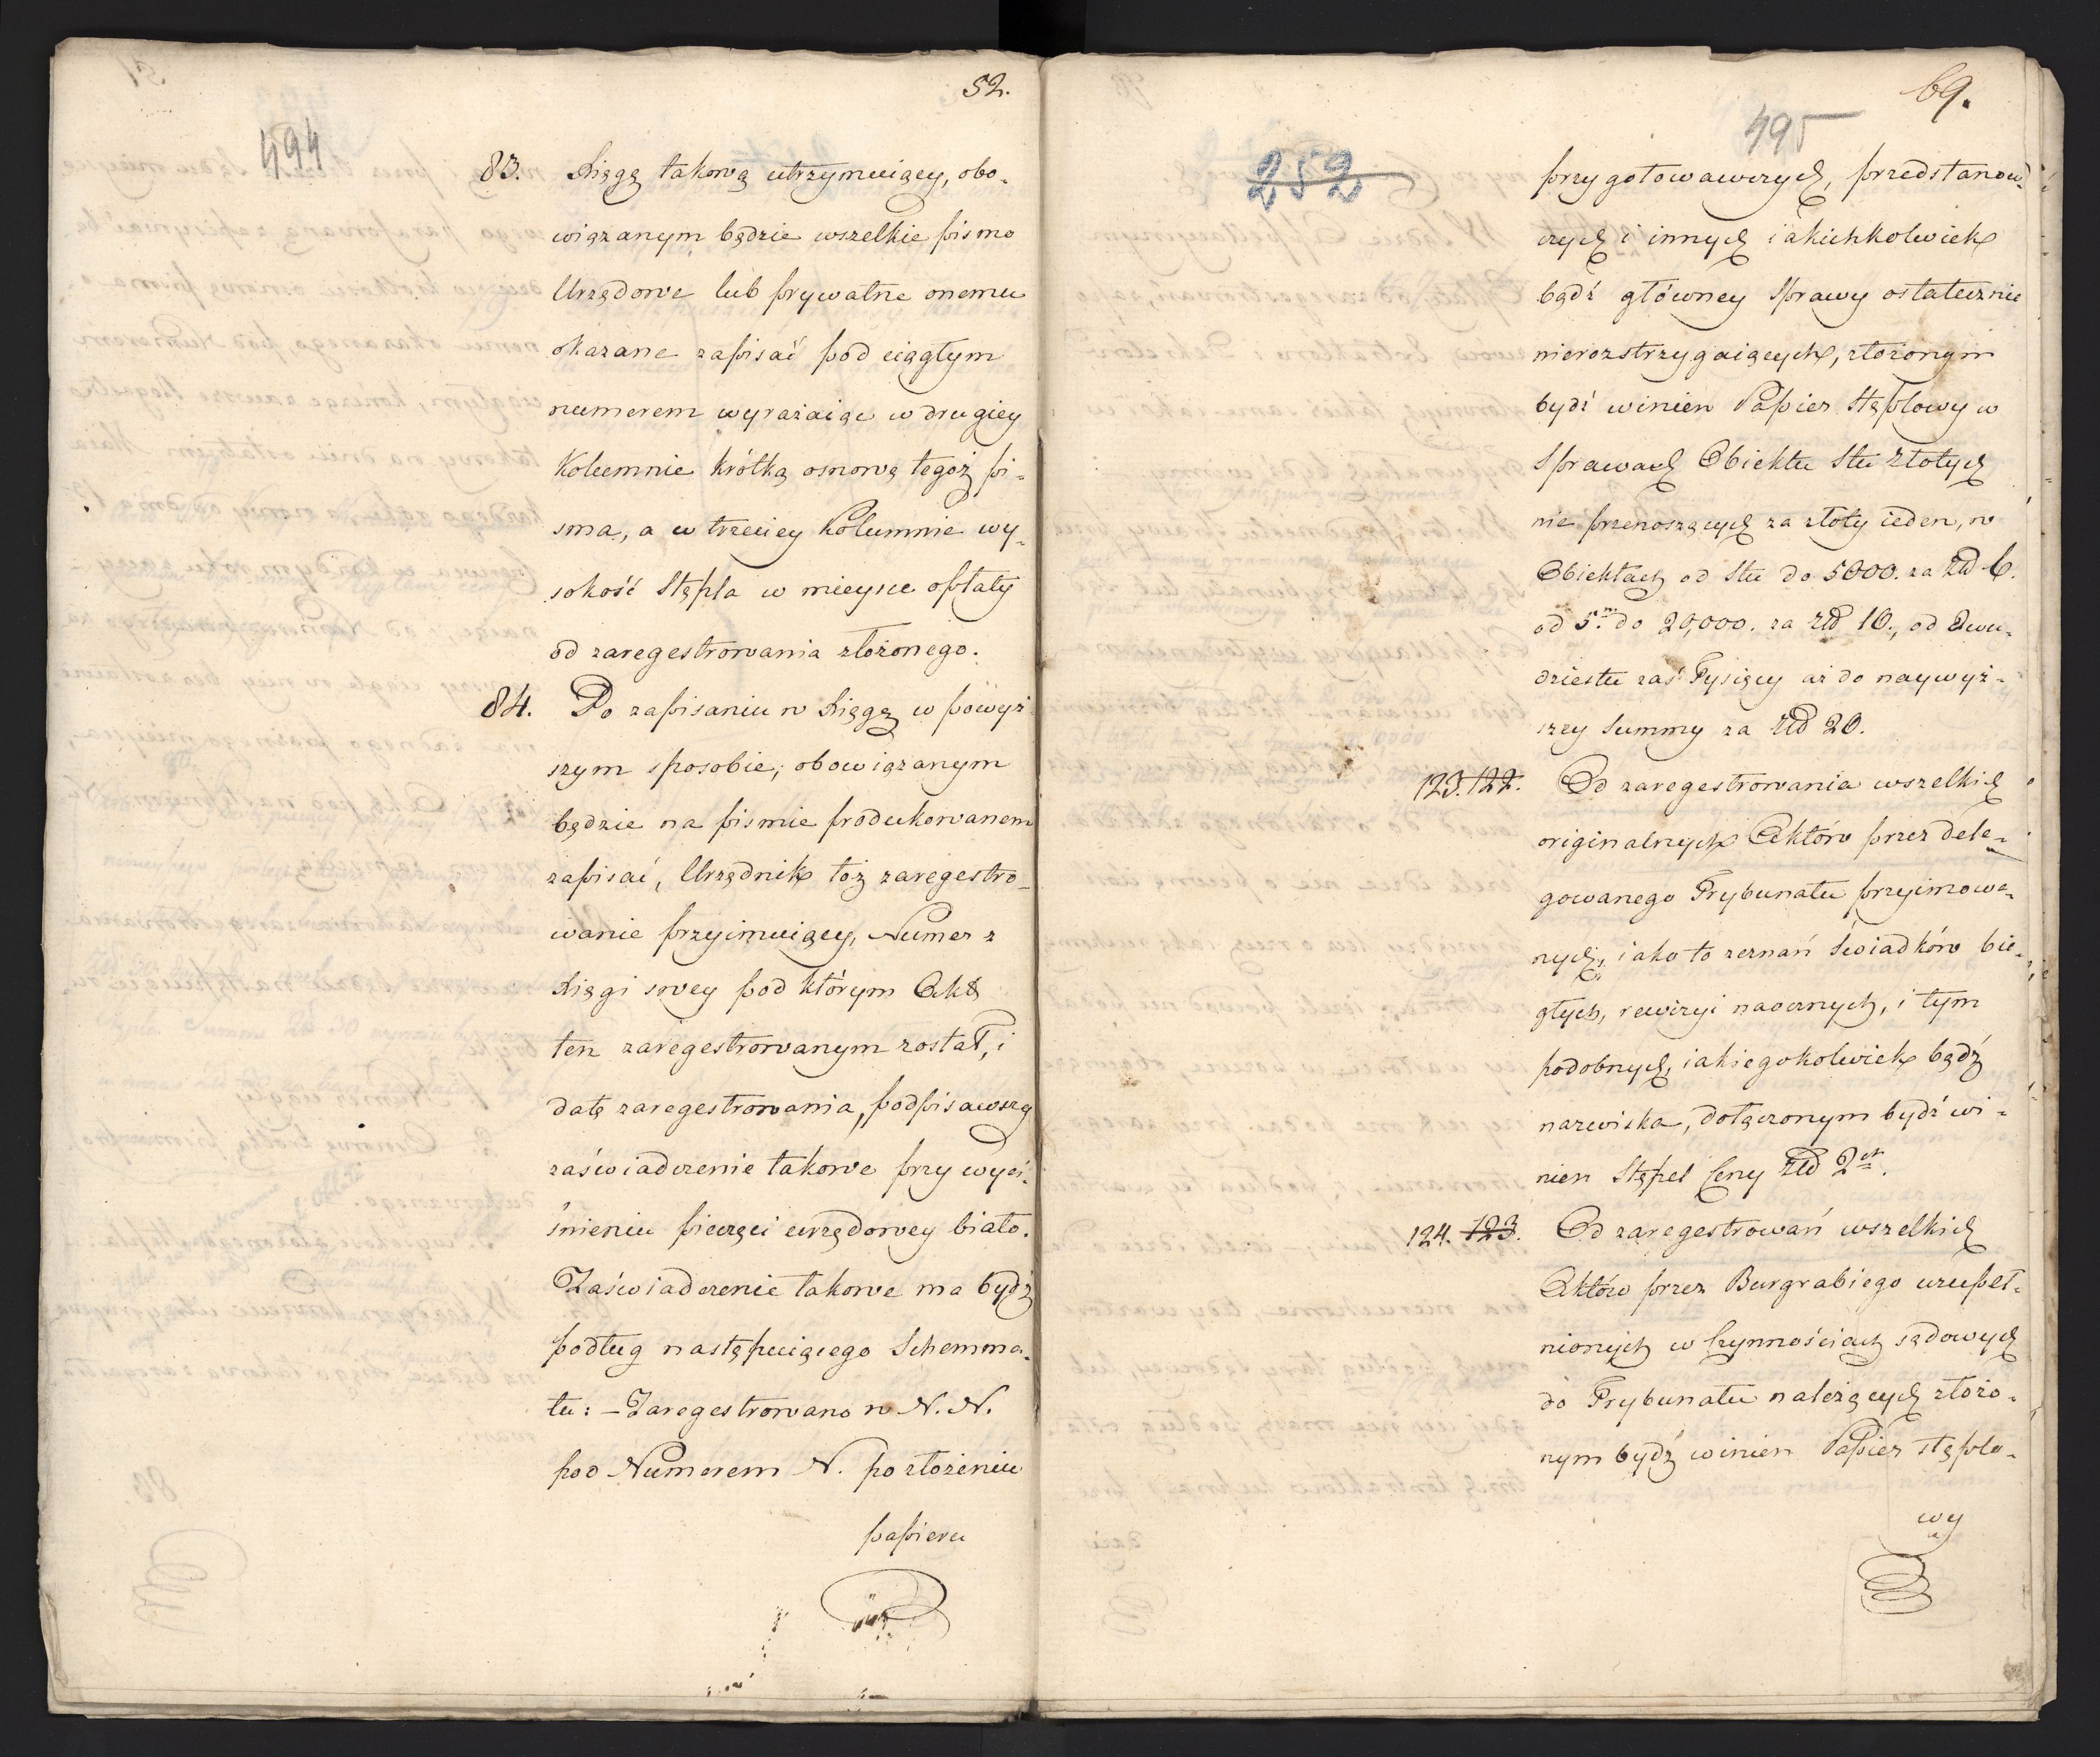 52.
494
83. Xięgę takową utrzymuiący, obo-
wiązanym będzie wszelkie pismo
Urzędowe lub prywatne onemu
okazane zapisać pod ciągłym
numerem wyrażaiąc w drugiey
Kolumnie krótką osnowę tegoż pi-
sma, a w trzeciey Kolumnie wy-
sokość Stępla w mieysce opłaty
od zaregestrowania złożonego.
84. Po zapisaniu w Xięgę w powyż-
szym sposobie, obowiązanym
będzie na pismie produkowanem
zapisać, Urzędnik toż zaregestro-
wanie przyimuiący, Numer z
Xięgi swey pod którym Akt
ten zaregestrowanym został, i
datę zaregestrowania, podpisawszy
zaświadczenie takowe przy wyci-
śnieniu pieczęci urzędowey biało.
Zaświadczenie takowe ma bydź
podług następuiącego Schemma-
tu: – Zaregestrowano w N. N.
pod Numerem N. po złożeniu
papieru
69.
495
252
przygotowawczych, przedstanow-
czych i innych iakichkolwiek
bądź główney Sprawy ostatecznie
nierozstrzygaiących, złożonym
bydź winien Papier stęplowy w
Sprawach Obiektu Stu Złotych
nie przenoszących za złoty ieden, w
Obiektach od Stu do 5000. za Złd 6.
od 5.m do 20,000. za Złd 10., od dwu-
dziestu zaś Tysięcy aż do naywyż-
szey Summy za Złd 20.
123. 122. Od zaregestrowania wszelkich
originalnych Aktów przez dele-
gowanego Trybunatu przyimowa-
nych, iako to zeznań Swiadków bie-
głych, rewizyi naocznych, i tym
podobnych, iakiegokolwiek bądź
nazwiska, dołączonym bydź wi-
nien Stępel Ceny Złd 2ch.
124. 123. Od zaregestrowań wszelkich
Aktów przez Burgrabiego uzupeł-
nionych w Czynnościach sądowych
do Trybunatu należących złożo-
nym bydź winien Papier stęplo-
wy